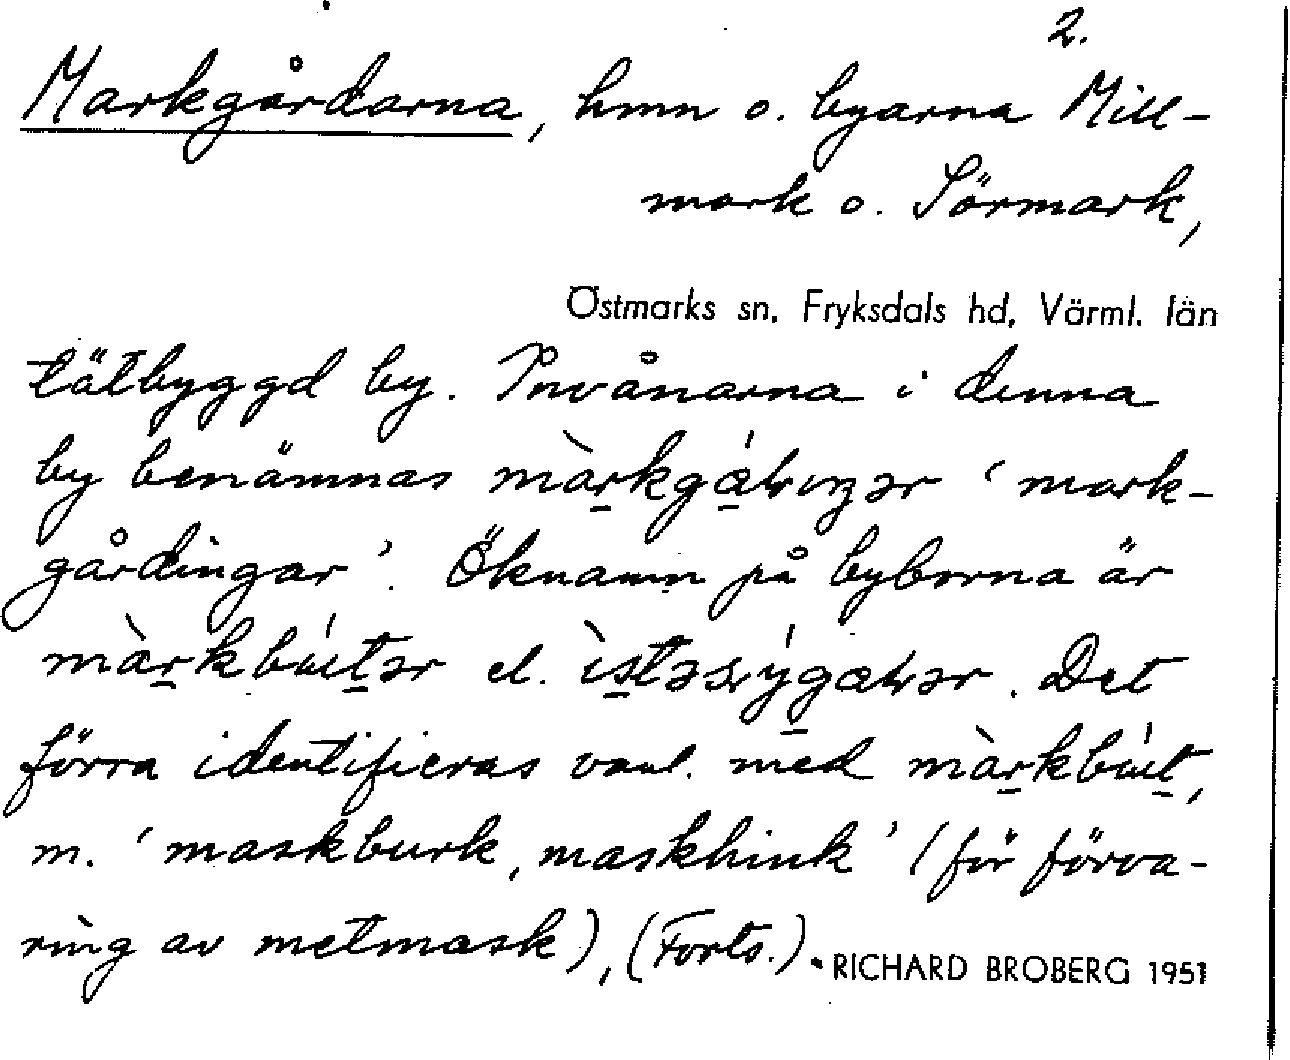 2.
Markgårdarna, hmn o. byarna Mill-
mark o. Sörmark,
Östmarks sn, Fryksdals hd, Värml. län
tätbyggd by. Invånarna i denna
by benämnas ' mark-
gårdingar '. Öknamn på byborna är
el. . Det
förra identifieras vanl. med
m. ' maskburk, maskhink ' (för förva-
ring av metmask), (Forts.).
RICHARD BROBERG 1951